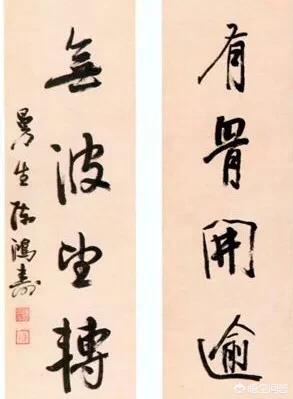 有骨開逾
無波望轉
曼生陳鴻壽
悟空问答